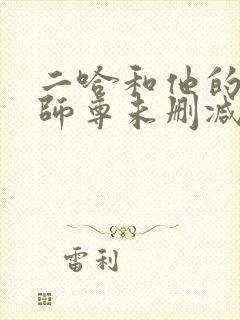 二哈和他的
師尊未删减
雷利